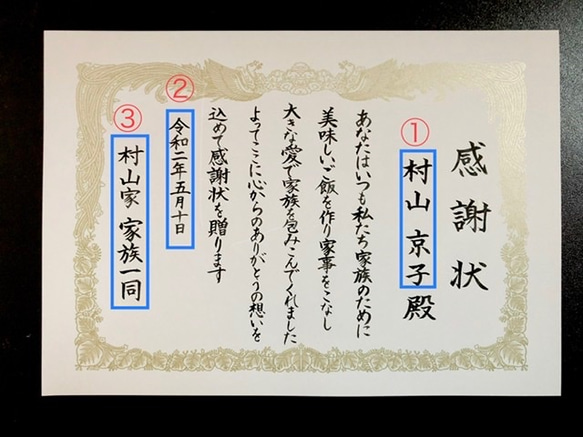 感謝状
①
村山 京子殿
あなたはいつも私たち家族のために
美味しいご飯を作り家事をこなし
大きな愛で家族を包みこんでくれました
よってここに心からのありがとうの想いを
込めて感謝状を贈ります
②
令和二年五月十日
③
村山家 家族一同